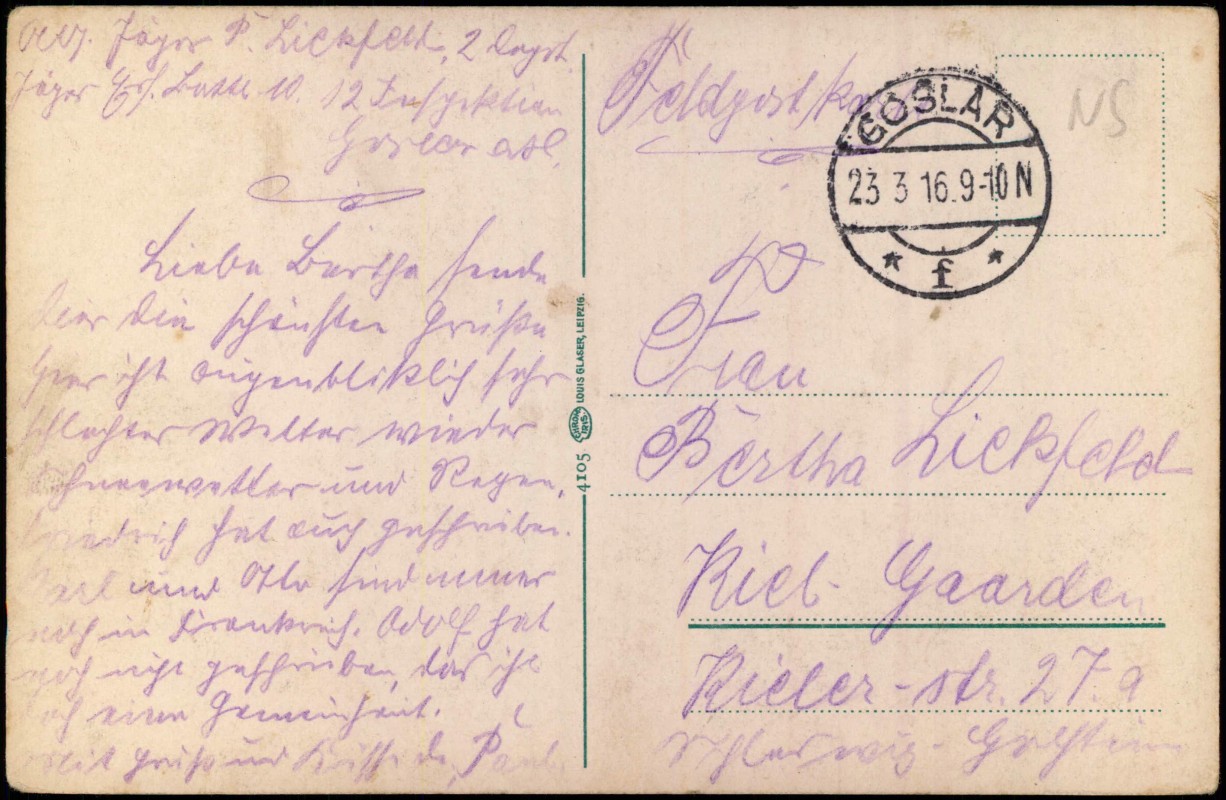 Jäger P. Lickfeld, 2 Cugst.
Jäger Ers. Battl. 10. 12 Inspektion
Goslar
Liebe Bertha sende
dier die schönsten Grüße
hier ist augenbliklich sehr
schlechtes Wetter wieder
Schneewetter und Regen.
Friedrich hat auch geschrieben.
Karl und Otto sind immer
noch in Frankreich. Adolf hat
noch nicht geschrieben, das ist
doch eine Gemeinheit.
Mit Gruß und Küsse de. Paul.
4105
CHROM IRIS
LOUIS GLASER, LEIPZIG.
Feldpostkarte
GOSLAR
23 3 16. 9-10 N
* f *
NS
Frau
Bertha Lickfeld
Kiel - Gaarden
Kieler-str. 27.a
Schleswig-Holstein